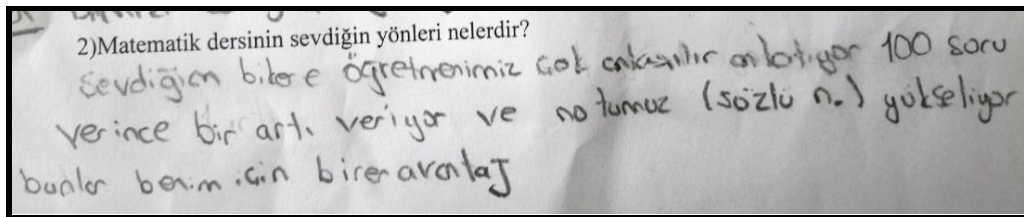 2)Matematik dersinin sevdiğin yönleri nelerdir?
Sevdiğim bikere öğretmenimiz çok anlaşılır anlatıyor 100 soru
verince bir artı veriyor ve notumuz (sözlü n.) yükseliyor
bunlar benim için birer avantaj